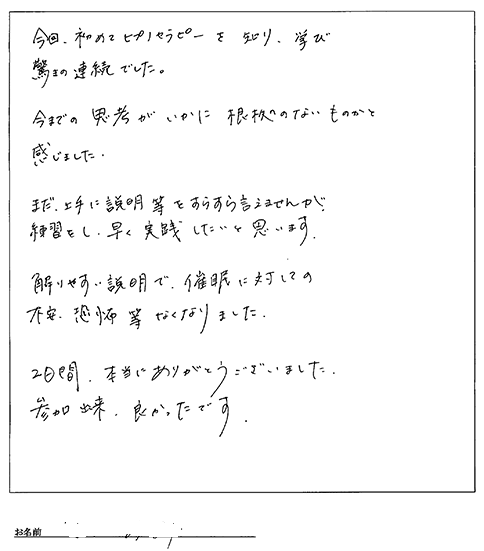 今回、初めてヒプノセラピーを知り、学び
驚きの連続でした。
今までの思考がいかに根拠のないものかと
感じました.
まだ、上手に説明等をすらすら言えませんが、
練習をし、早く実践したいと思います.
解りやすい説明で、催眠に対しての
不安、恐怖等なくなりました.
2日間、本当にありがとうございました.
参加出来、良かったです.
お名前